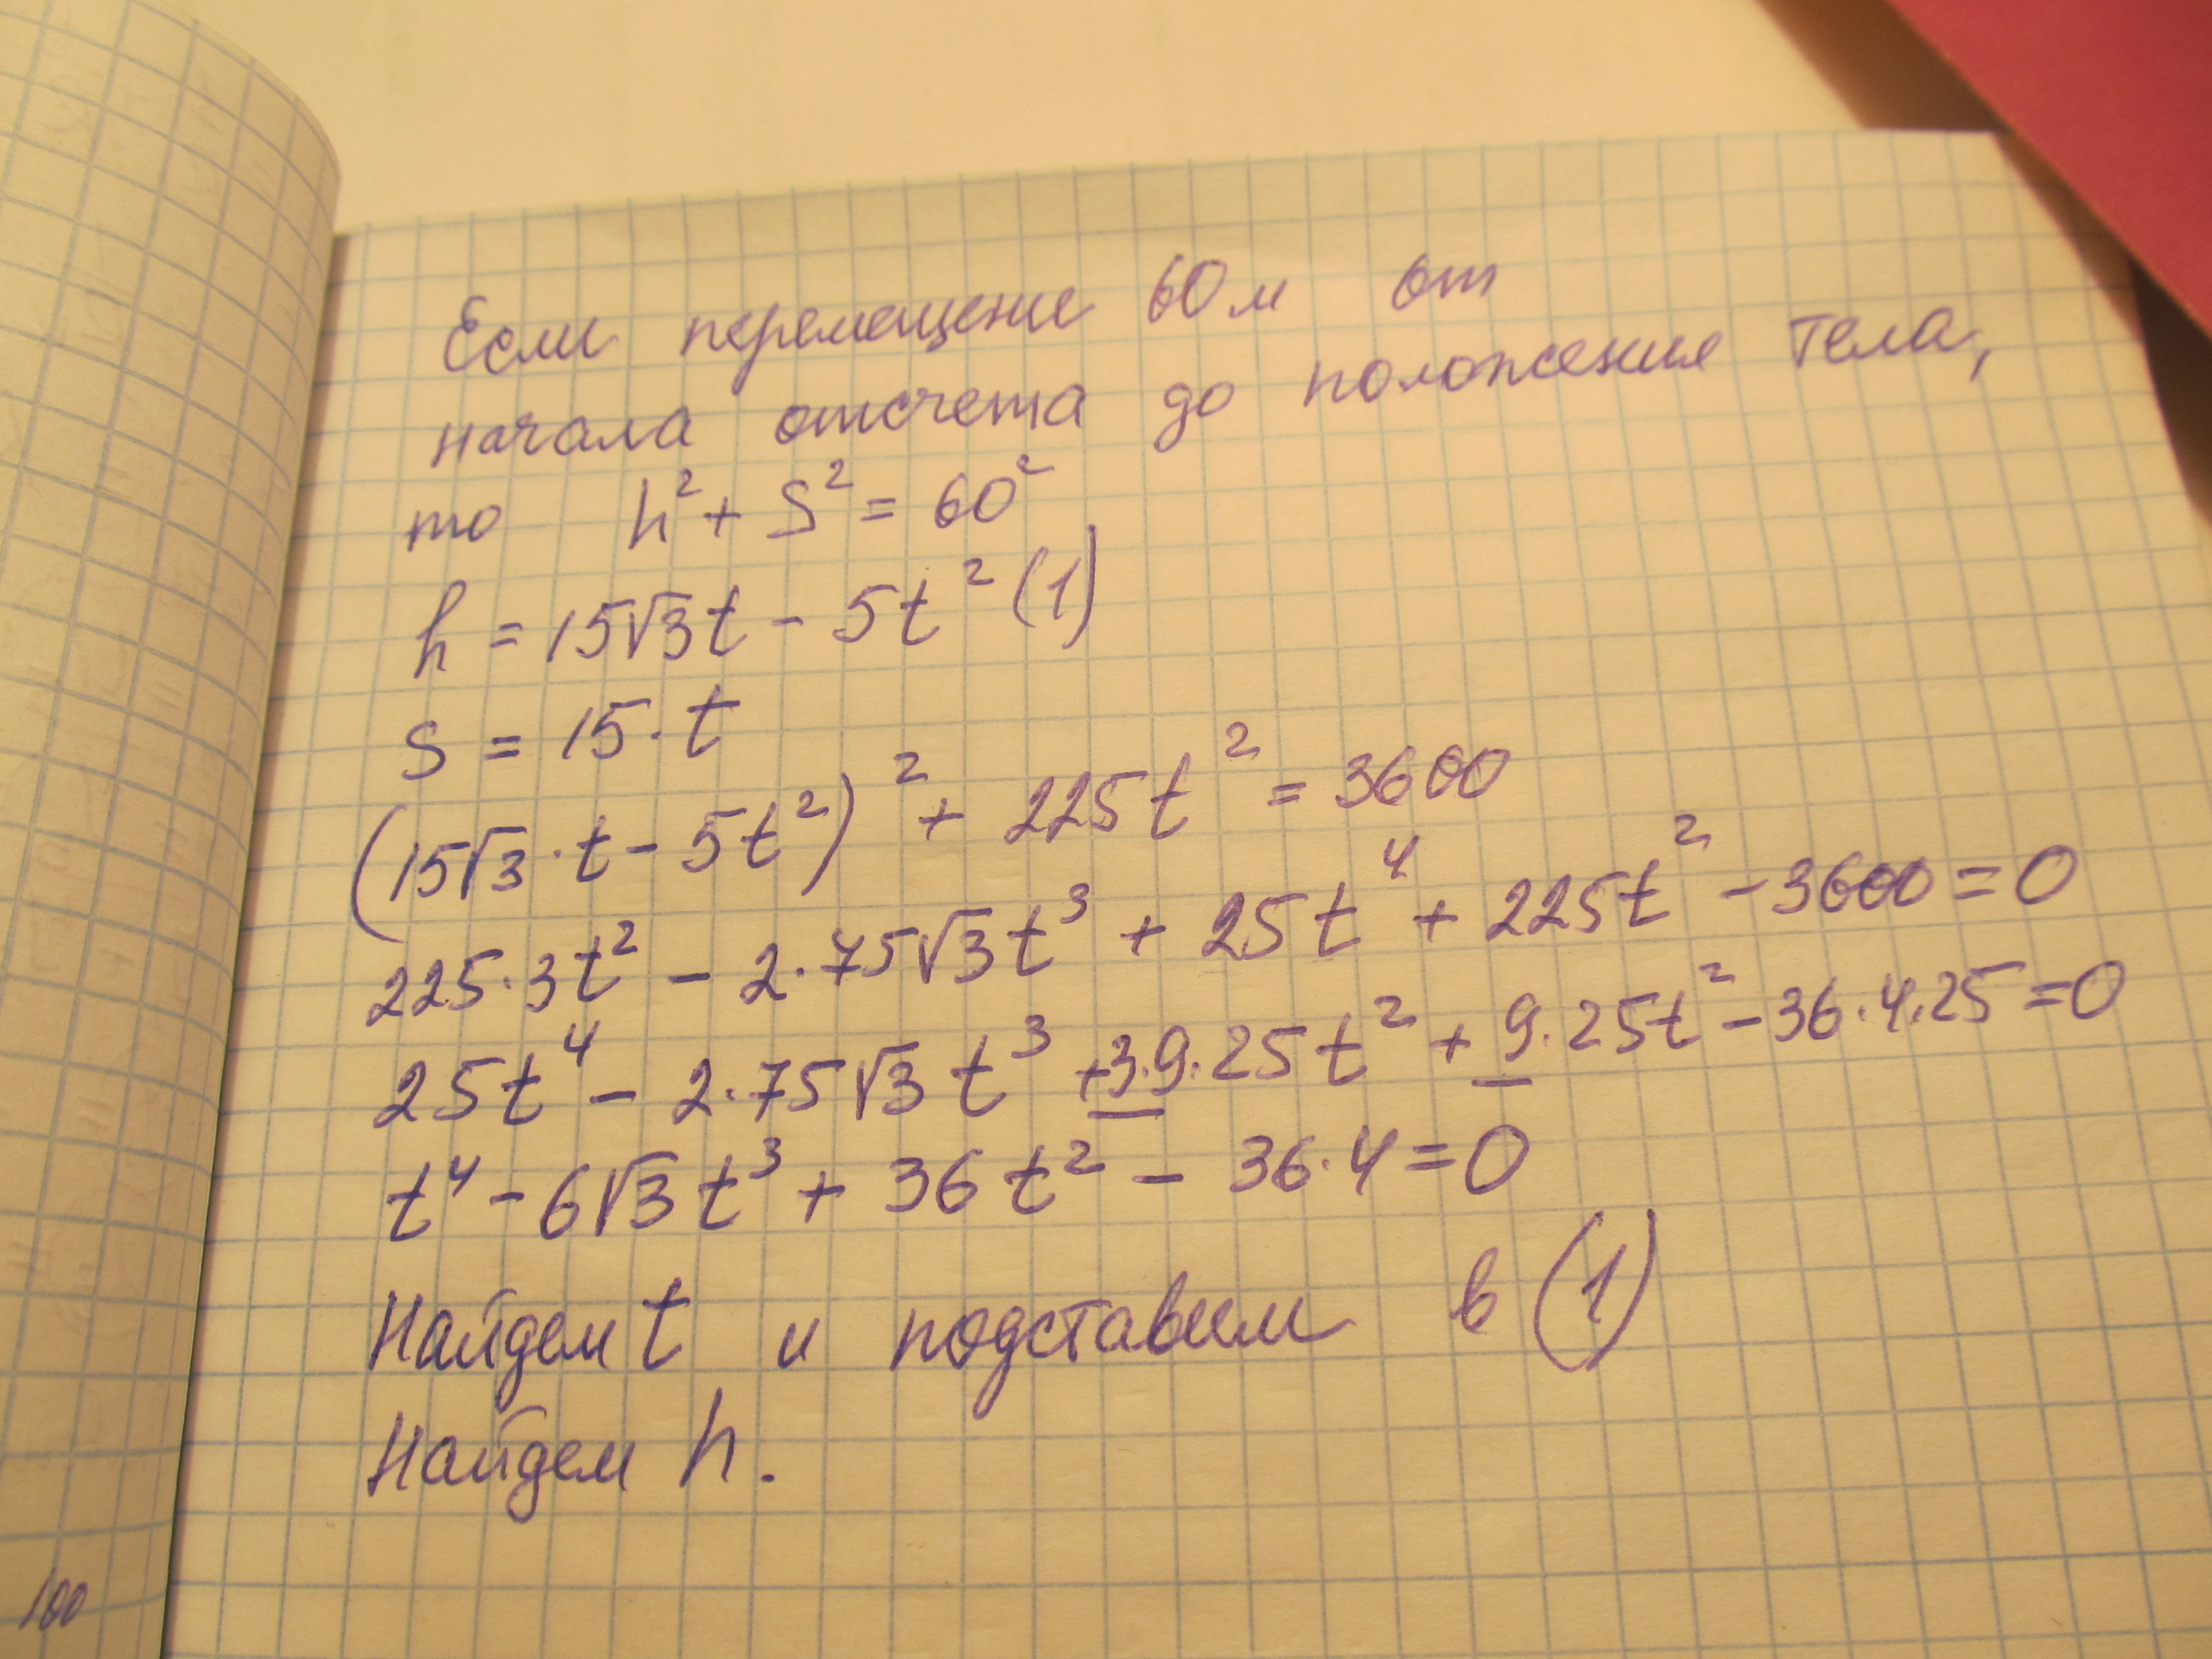 Если перемещение 60 м от
начала отсчета до положения тела,
то h² + S² = 60²
h = 15√3t - 5t² (1)
S = 15·t
(15√3·t - 5t²)² + 225t² = 3600
225·3t² - 2·75√3t³ + 25t⁴ + 225t² - 3600 = 0
25t⁴ - 2·75√3t³ + 3·9·25t² + 9·25t² - 36·4·25 = 0
t⁴ - 6√3t³ + 36t² - 36·4 = 0
Найдем t и подставим в (1)
Найдем h.
100